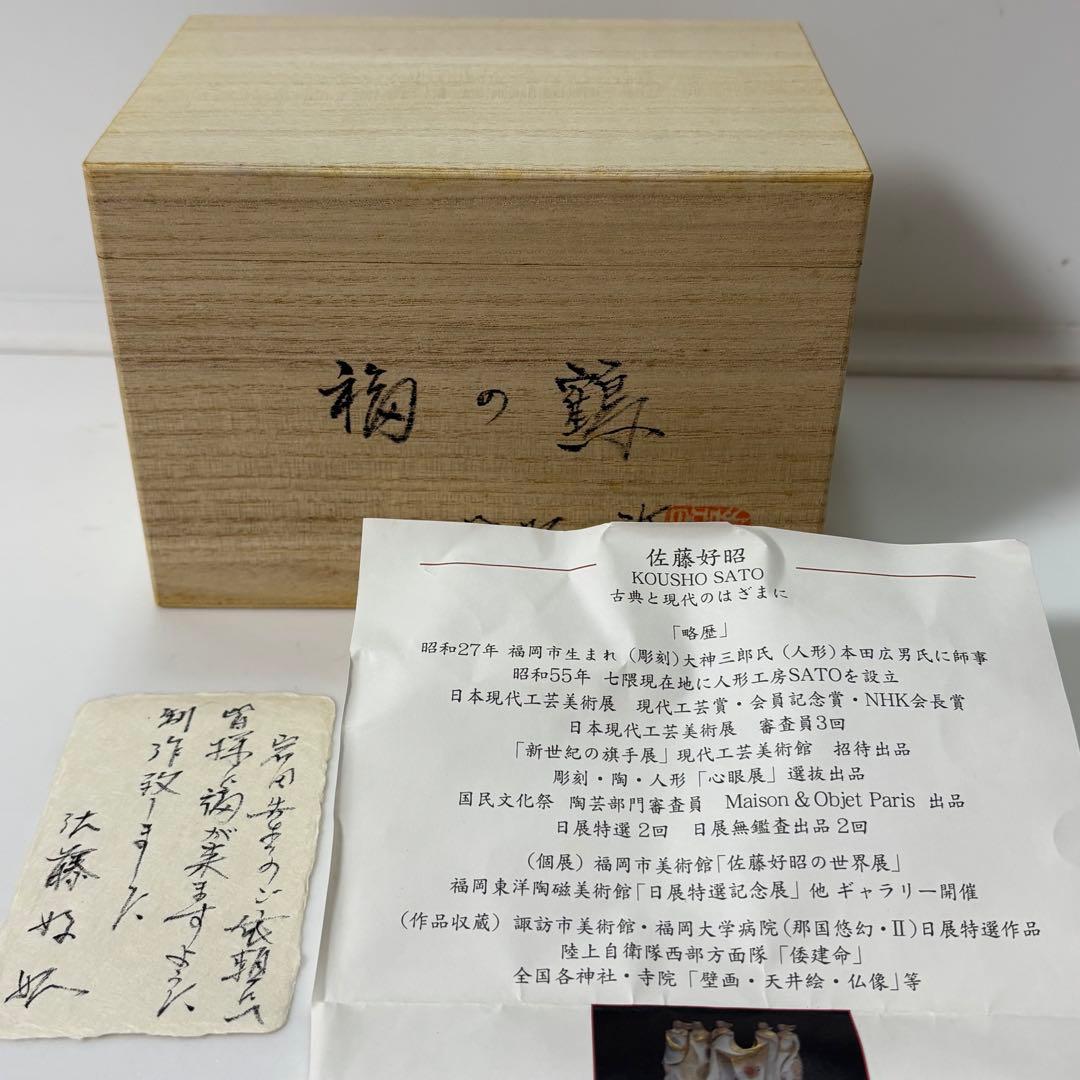 福の鶴
佐藤好昭
KOUSHO SATO
古典と現代のはざまに
「略歴」
昭和27年 福岡市生まれ (彫刻)大神三郎氏 (人形)本田広男氏に師事
昭和55年 七隈現在地に人形工房SATOを設立
日本現代工芸美術展 現代工芸賞・会員記念賞・NHK会長賞
日本現代工芸美術展 審査員3回
「新世紀の旗手展」現代工芸美術館 招待出品
彫刻・陶・人形「心眼展」選抜出品
国民文化祭 陶芸部門審査員 Maison & Objet Paris 出品
日展特選2回 日展無鑑査出品2回
(個展) 福岡市美術館「佐藤好昭の世界展」
福岡東洋陶磁美術館「日展特選記念展」他 ギャラリー開催
(作品収蔵) 諏訪市美術館・福岡大学病院(那国悠幻・II)日展特選作品
陸上自衛隊西部方面隊「倭建命」
全国各神社・寺院「壁画・天井絵・仏像」等
岩田先生のご依頼にて
皆様に福が来ますように
制作致しました
佐藤好昭